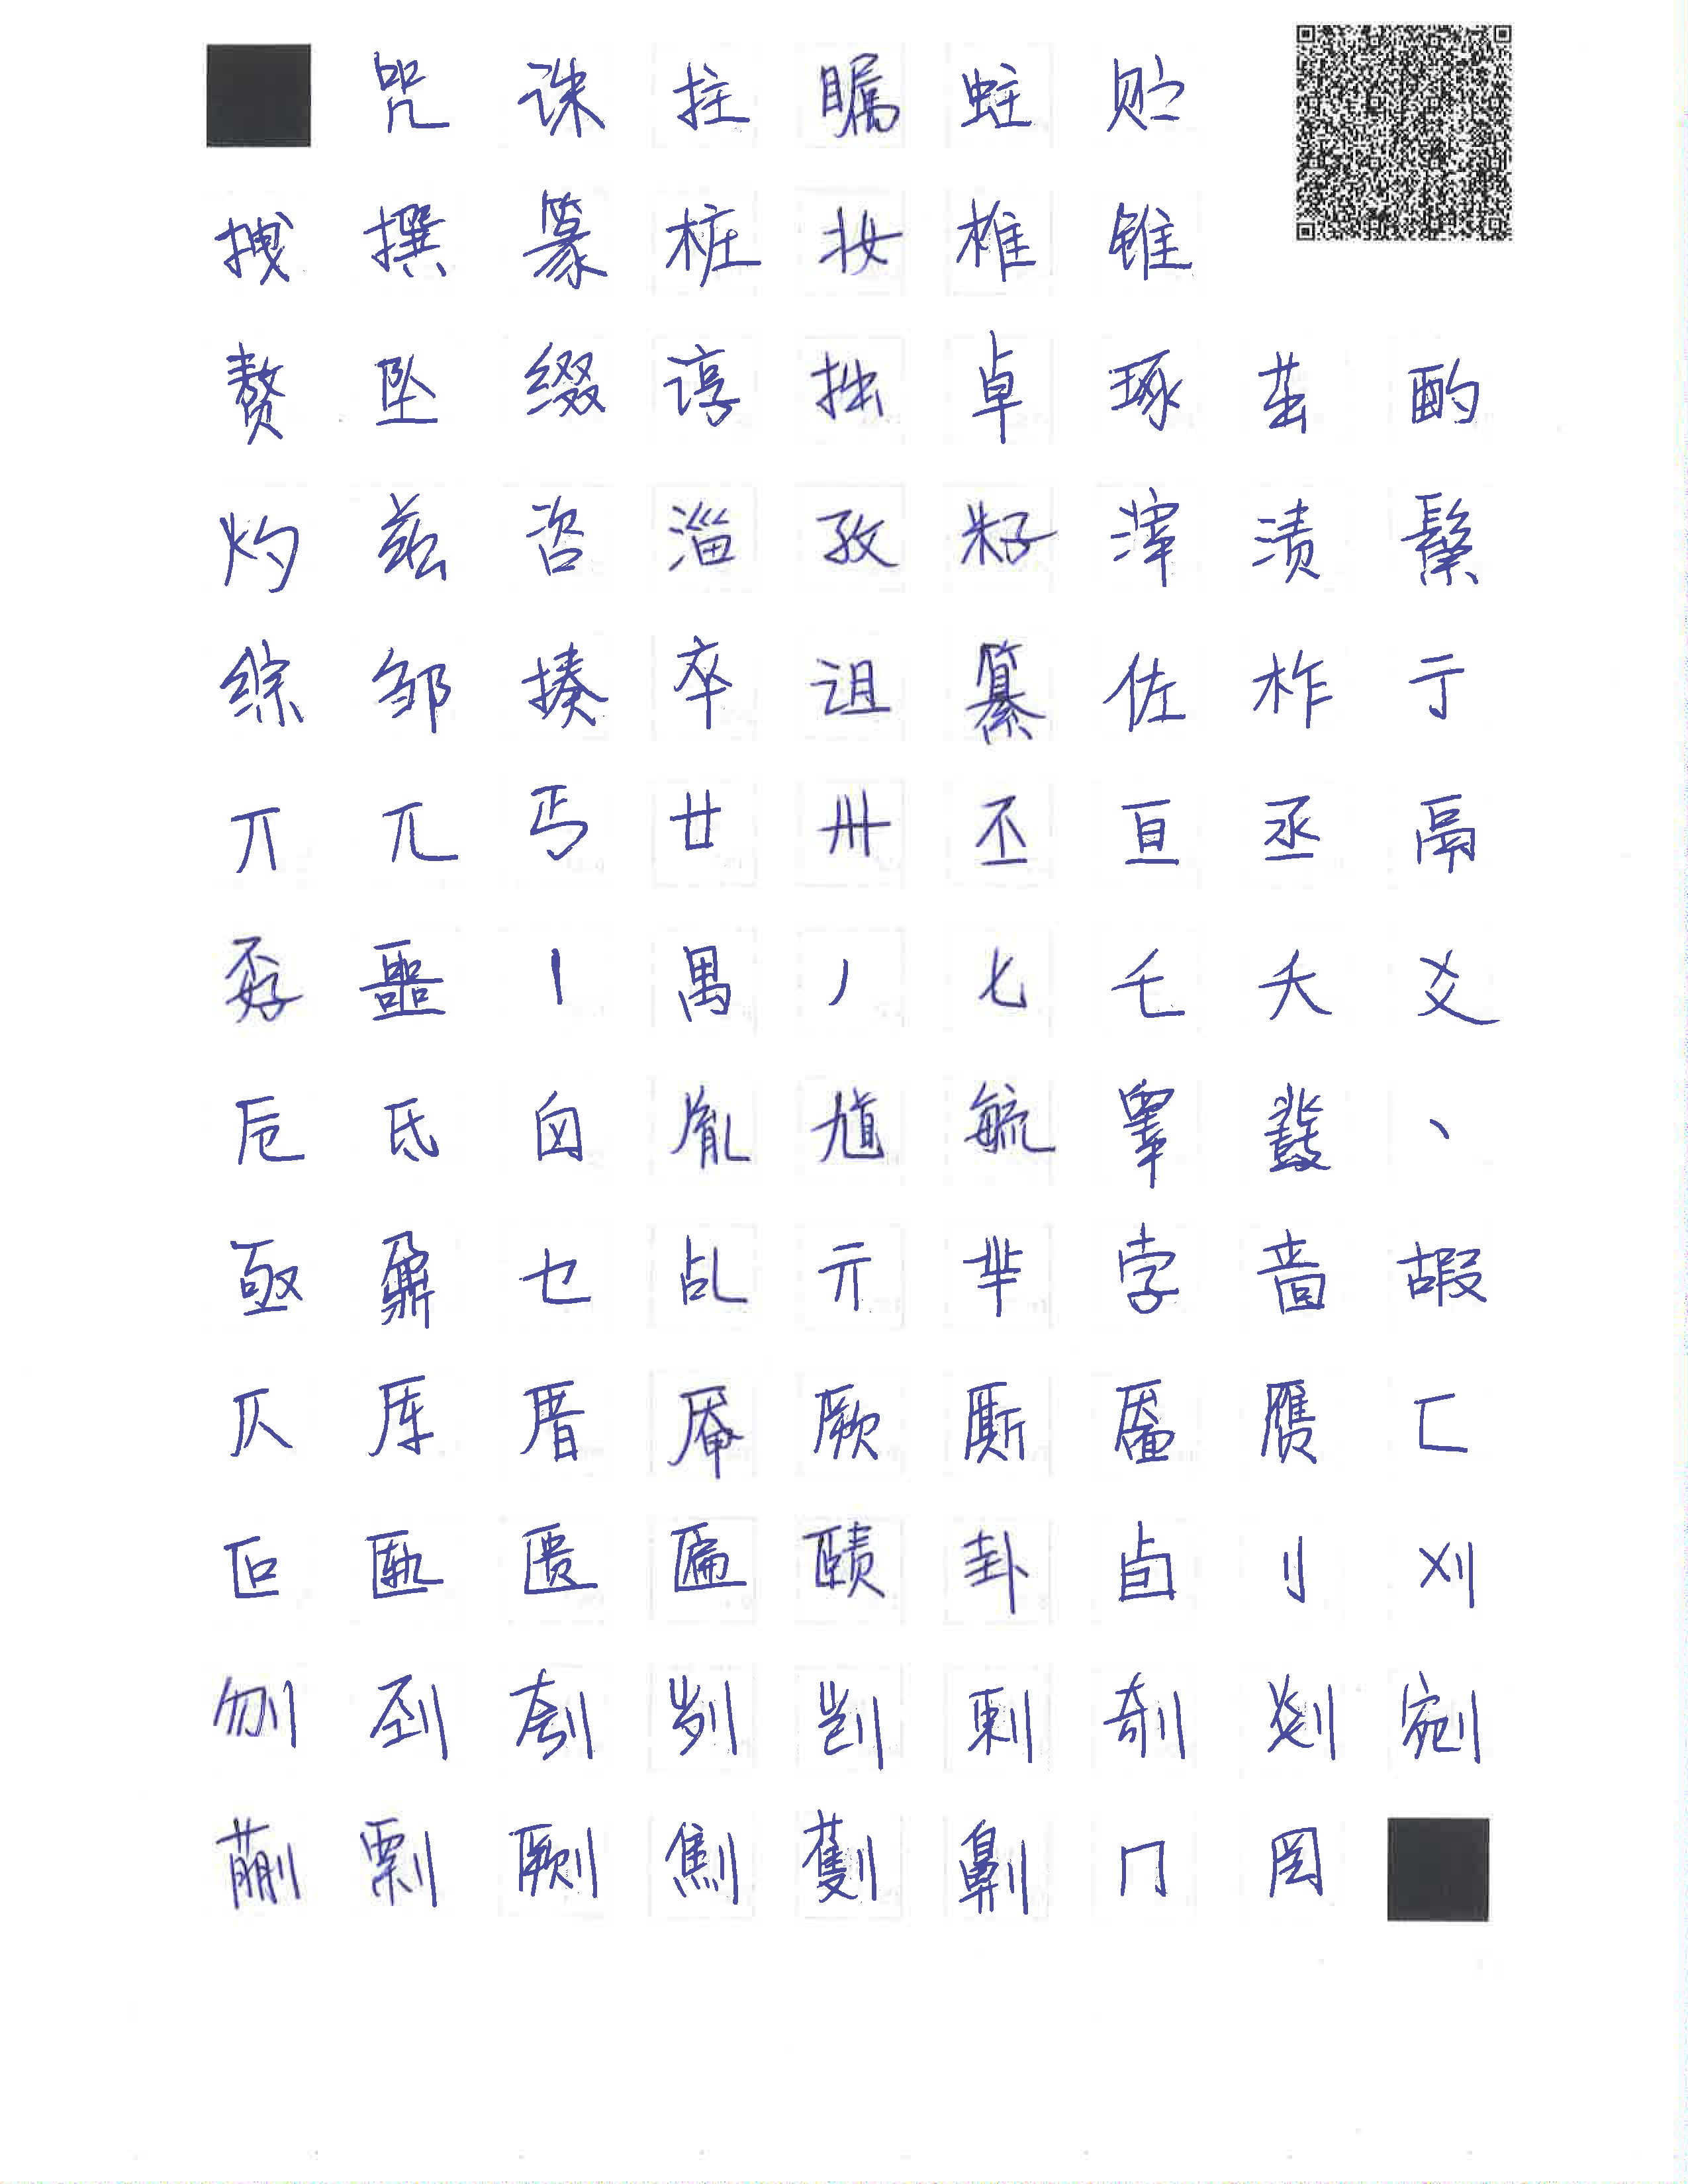 咒诛拄瞩蛀贮
拽撰篆桩妆椎锥
赘坠缀谆拙卓琢茁酌
灼兹咨淄孜籽滓渍鬃
综邹揍卒诅纂佐柞亍
丌兀丐廿卅丕亘丞鬲
孬噩丨禺丿匕乇夭爻
卮氐囟胤馗毓睾鼗丶
亟鼐乜乩亓芈孛啬嘏
仄厍厝厣厥厮靥赝匚
叵匦匮匾赜卦卣刂刈
刎刭刳刿剀剌剞剡剜
蒯剽劂劁劐劓冂罔